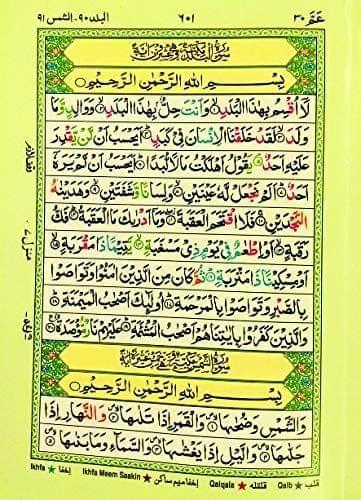 عَمَّ ٣٠ ٦٠١ البلد ٩٠-الشمس ٩١
بِسْمِ اللّٰهِ الرَّحْمٰنِ الرَّحِيْمِ
لَاۤ اُقْسِمُ بِهٰذَا الْبَلَدِۙ۝ وَاَنْتَ حِلٌّۢ بِهٰذَا الْبَلَدِۙ۝ وَوَالِدٍ وَّمَا
وَلَدَۙ۝ لَقَدْ خَلَقْنَا الْاِنْسَانَ فِيْ كَبَدٍؕ۝ اَيَحْسَبُ اَنْ لَّنْ يَّقْدِرَ
عَلَيْهِ اَحَدٌۘ۝ يَقُوْلُ اَهْلَكْتُ مَالًا لُّبَدًاؕ۝ اَيَحْسَبُ اَنْ لَّمْ يَرَهٗۤ
اَحَدٌؕ۝ اَلَمْ نَجْعَلْ لَّهٗ عَيْنَيْنِۙ۝ وَلِسَانًا وَّشَفَتَيْنِۙ۝ وَهَدَيْنٰهُ
النَّجْدَيْنِۚ۝ فَلَا اقْتَحَمَ الْعَقَبَةَۖ۝ وَمَاۤ اَدْرٰىكَ مَا الْعَقَبَةُؕ۝ فَكُّ
رَقَبَةٍۙ۝ اَوْ اِطْعٰمٌ فِيْ يَوْمٍ ذِيْ مَسْغَبَةٍۙ۝ يَّتِيْمًا ذَا مَقْرَبَةٍۙ۝
اَوْ مِسْكِيْنًا ذَا مَتْرَبَةٍؕ۝ ثُمَّ كَانَ مِنَ الَّذِيْنَ اٰمَنُوْا وَتَوَاصَوْا
بِالصَّبْرِ وَتَوَاصَوْا بِالْمَرْحَمَةِؕ۝ اُولٰٓئِكَ اَصْحٰبُ الْمَيْمَنَةِؕ۝
وَالَّذِيْنَ كَفَرُوْا بِاٰيٰتِنَا هُمْ اَصْحٰبُ الْمَشْـَٔمَةِؕ۝ عَلَيْهِمْ نَارٌ مُّؤْصَدَةٌ۝
بِسْمِ اللّٰهِ الرَّحْمٰنِ الرَّحِيْمِ
وَالشَّمْسِ وَضُحٰىهَاۙ۝ وَالْقَمَرِ اِذَا تَلٰىهَاۙ۝ وَالنَّهَارِ اِذَا
جَلّٰىهَاۙ۝ وَالَّيْلِ اِذَا يَغْشٰىهَاۙ۝ وَالسَّمَآءِ وَمَا بَنٰىهَاۙ۝
Ikhfa ★ إخفا Ikhfa Meem Saakin ★ إخفا ميم ساكن Qalqala ★ قلقله Qalb ★ قلب
منزل ٧